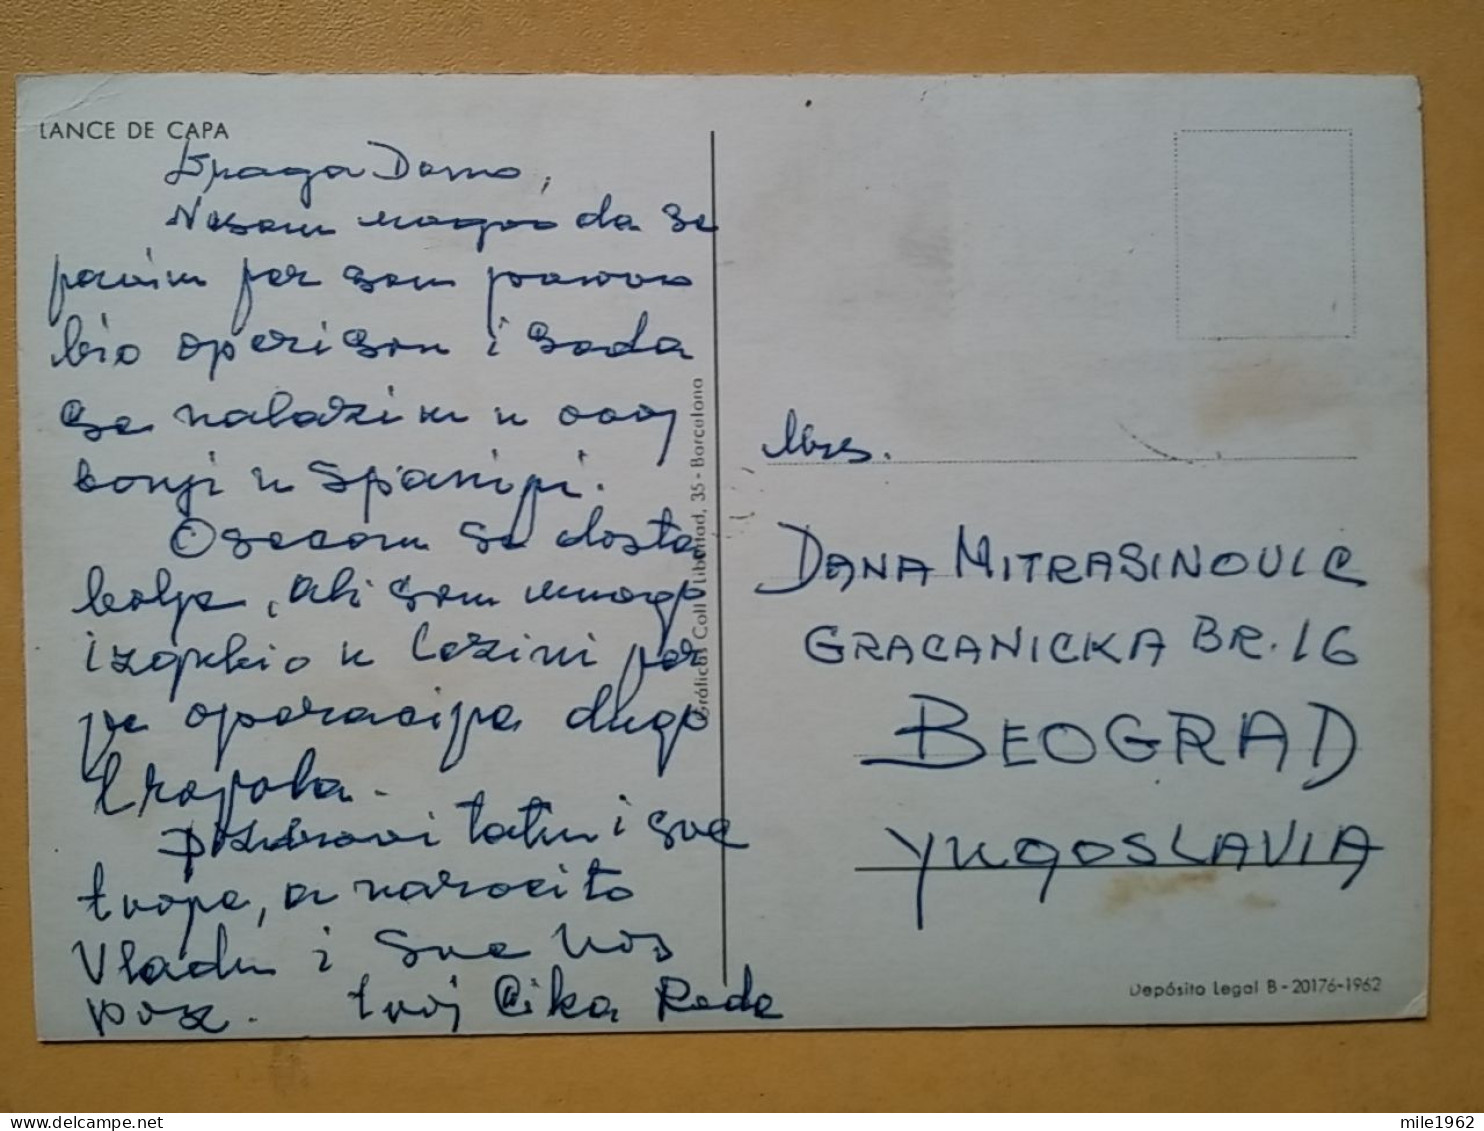 LANCE DE CAPA
Draga Dano,
Nisam mogao da se
javim jer sam ponovo
bio operisan i sada
se nalazim u ovoj
banji u Španiji.
Osecam se dosta
bolje, ali sam mnogo
izgubio u težini jer
je operacija dugo
trajala.
Pozdravi tatu i sve
tvoje, a narocito
Vladu i sve vas
poz. tvoj Cika Rade
Gráficas Coll Libertad, 35 - Barcelona
Mrs.
DANA MITRASINOVIC
GRACANICKA BR. 16
BEOGRAD
YUGOSLAVIA
Depósito Legal B - 20176-1962
mile1962